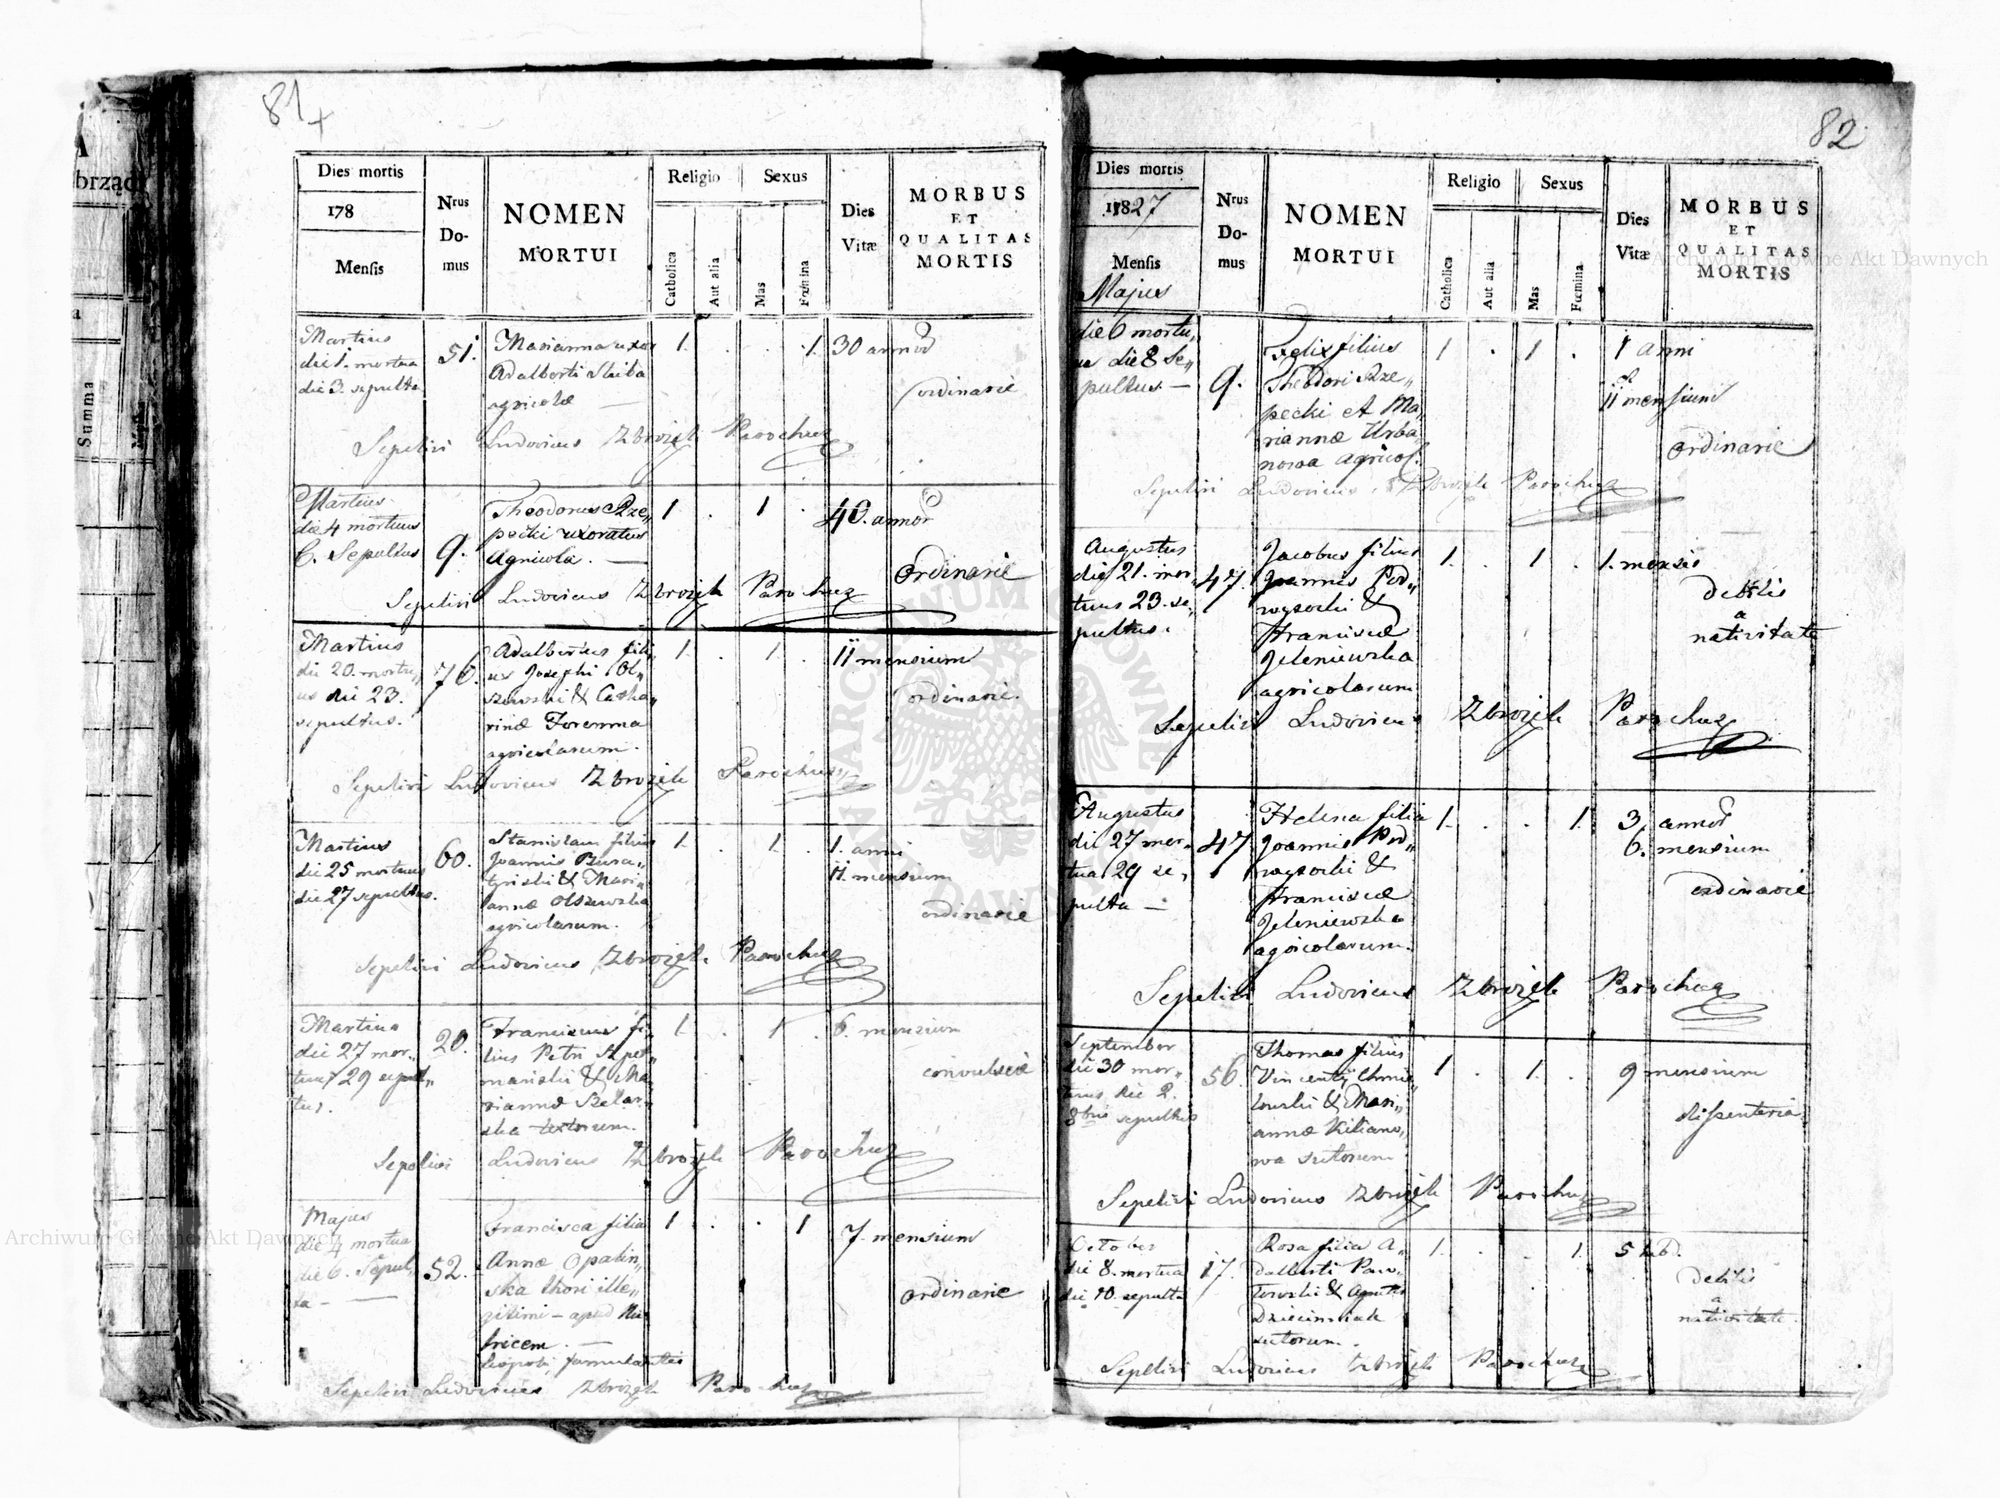 81
Dies mortis
178
Mensis
Nrus
Do-
mus
NOMEN
MORTUI
Religio
Catholica
Aut alia
Sexus
Mas
Fœmina
Dies
Vitæ
MORBUS
ET
QUALITAS
MORTIS
Martius
die 1. mortua
die 3. sepulta
51.
Marianna uxor
Adalberti Skiba
agricolæ
1. . . 1.
30 annor
ordinarie
Sepelivi Ludovicus Zbrożek Parochus
Martius
die 4 mortuus
6. Sepultus
9.
Theodorus Rze„
pecki uxoratus
Agricola.
1 . 1 .
40. annor
Ordinarie
Sepelivi Ludovicus Zbrożek Parochus
Martius
die 20. mortu„
us die 23.
sepultus.
76.
Adalbertus fili„
us Josephi Ol„
szewski & Catha„
rinæ Foremna
agricolarum.
1. . 1. .
11 mensium
ordinarie.
Sepelivi Ludovicus Zbrożek Parochus
Martius
die 25 mortuus
die 27 sepultus.
60.
Stanislaus filius
Joannis Bura„
tyński & Mari„
annæ Olszewska
agricolarum.
1. . 1. .
1. anni
11. mensium
ordinarie
Sepelivi Ludovicus Zbrożek Parochus
Martius
die 27 mor„
tuus 29 sepul„
tus.
20.
Franciscus fi„
lius Petri Szper„
mański & Ma„
riannæ Szelar„
ska textorum.
1. . 1 .
6. mensium
convulsie
Sepelivi Ludovicus Zbrożek Parochus
Majus
die 4 mortua
die 6. Sepul„
ta
52.
Francisca filia
Annæ Opalin„
ska thori ille„
gitimi – apud Nu„
tricem.
famulantis
1 . . 1
7. mensium
ordinarie
Sepelivi Ludovicus Zbrożek Parochus
82
Dies mortis
1827
Mensis
Majus
Nrus
Do-
mus
NOMEN
MORTUI
Religio
Catholica
Aut alia
Sexus
Mas
Fœmina
Dies
Vitæ
MORBUS
ET
QUALITAS
MORTIS
die 6 mortu„
us die 8 Se„
pultus —
9.
Felix filius
Theodori Rze„
pecki et Ma„
riannæ Urba„
nowa agricol.
1 . 1 .
1 anni
et
11 mensium
Ordinarie
Sepelivi Ludovicus Zbrożek Parochus
Augustus
die 21. mor„
tuus 23. se„
pultus.
47.
Jacobus filius
Joannis Pod„
wysocki &
Franciscæ
Jeleniewska
agricolarum
1. . 1 .
1. mensis
debilis
a
nativitate
Sepelivi Ludovicus Zbrożek Parochus
Augustus
die 27 mor„
tua 29 se„
pulta —
47
Helena filia
Joannis Pod„
wysocki &
Franciscæ
Jeleniewska
agricolarum.
1. . . 1.
3. annor
6. mensium
ordinarie
Sepelivi Ludovicus Zbrożek Parochus
September
die 30 mor„
tuus die 2.
8bris sepultus
56.
Thomas filius
Vincentij Chmie„
lowski & Mari„
annæ Kiliano„
wa sutorum
1 . 1. .
9 mensium
dissenteria
Sepelivi Ludovicus Zbrożek Parochus
October
die 8. mortua
die 10. sepulta
17.
Rosa filia A„
dalberti Paw„
łowski & Agnetis
Dzieciniak
sutorum.
1. . . 1.
debilis
a
nativitate.
Sepelivi Ludovicus Zbrożek Parochus
brząd
Summa
Archiwum Główne Akt Dawnych
Archiwum Główne Akt Dawnych
ARCHIWUM GŁÓWNE
AKT DAWNYCH